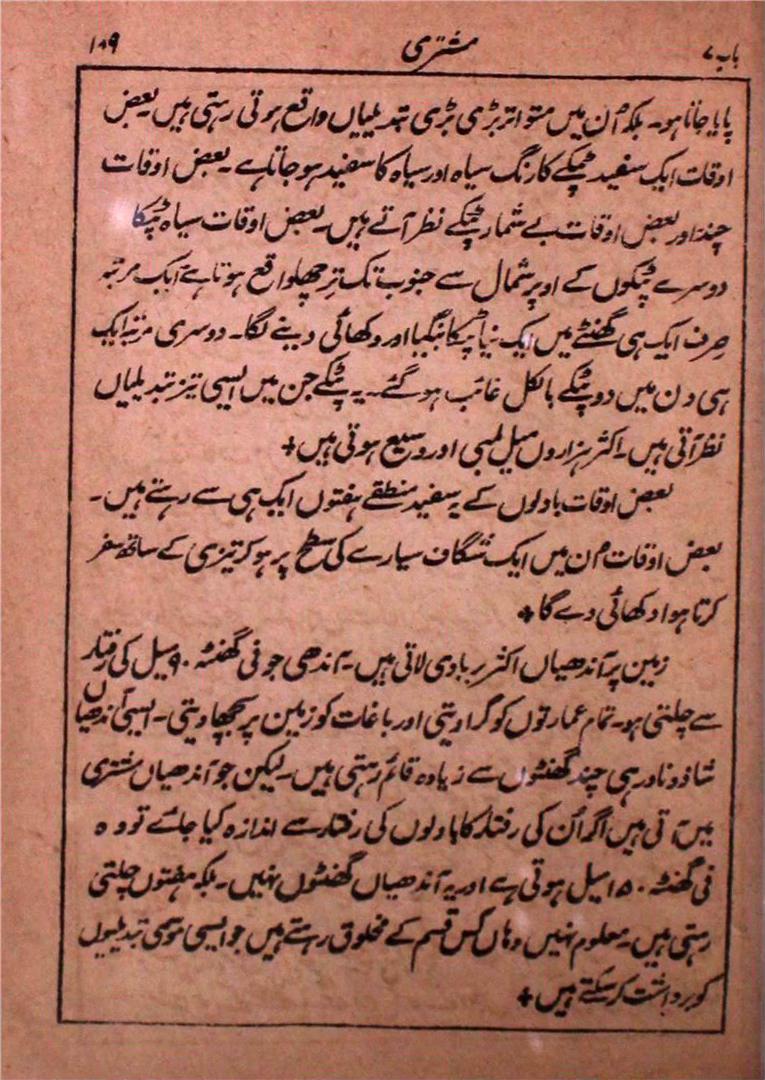 باب ۷ مشتری ۱۰۹
پایا جاتا ہو۔ بلکہ اُن میں متواتر بڑی بڑی تبدیلیاں واقع ہوتی رہتی ہیں۔ بعض
اوقات ایک سفید ٹپکے کا رنگ سیاہ اور سیاہ کا سفید ہو جاتا ہے۔ بعض اوقات
چند اور بعض اوقات بے شمار ٹپکے نظر آتے ہیں۔ بعض اوقات سیاہ ٹپکا
دوسرے ٹپکوں کے اوپر شمال سے جنوب تک ترچھا واقع ہوتا ہے ایک مرتبہ
صرف ایک ہی گھنٹے میں ایک نیا ٹپکا بنگیا اور دکھائی دینے لگا۔ دوسری مرتبہ ایک
ہی دن میں دو ٹپکے بالکل غائب ہو گئے۔ یہ ٹپکے جن میں ایسی تیز تبدیلیاں
نظر آتی ہیں۔ اکثر ہزاروں میل لمبی اور وسیع ہوتی ہیں +
بعض اوقات بادلوں کے یہ سفید منطقے ہفتوں ایک ہی سے رہتے ہیں۔
بعض اوقات اُن میں ایک شگاف سیارے کی سطح پر ہو کر تیزی کے ساتھ سفر
کرتا ہوا دکھائی دے گا +
زمین پر آندھیاں اکثر بربادی لاتی ہیں۔ آندھی جو فی گھنٹہ ۹۰ میل کی رفتار
سے چلتی ہو۔ تمام عمارتوں کو گرا دیتی اور باغات کو زمین پر بچھا دیتی۔ ایسی آندھیاں
شاذ و نادر ہی چند گھنٹوں سے زیادہ قائم رہتی ہیں۔ لیکن جو آندھیاں مشتری
میں آتی ہیں اگر اُن کی رفتار کا بادلوں کی رفتار سے اندازہ کیا جائے تو وہ
فی گھنٹہ ۱۵۰ میل ہوتی ہے اور یہ آندھیاں گھنٹوں نہیں۔ بلکہ ہفتوں چلتی
رہتی ہیں۔ معلوم نہیں وہاں کس قسم کے مخلوق رہتے ہیں جو ایسی موسمی تبدیلیوں
کو برداشت کر سکتے ہیں +